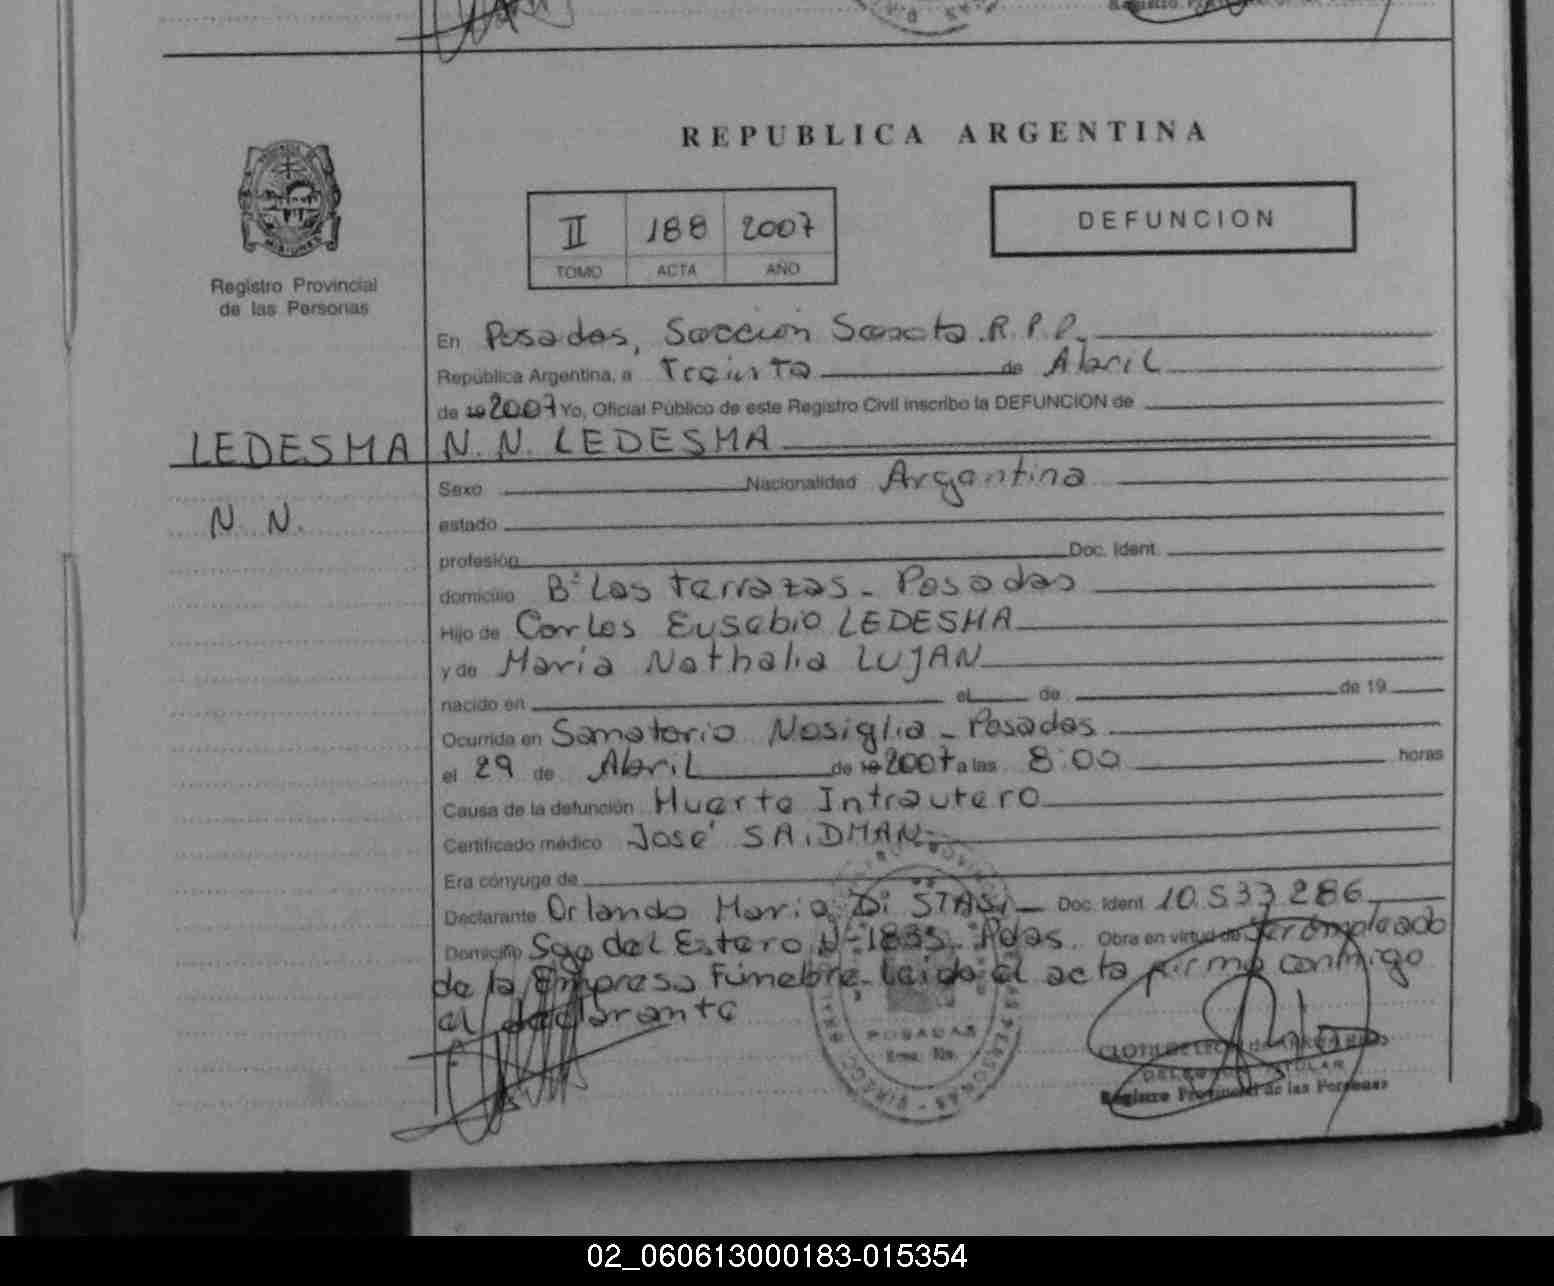 REPUBLICA ARGENTINA
II 188 2007
TOMO ACTA AÑO
DEFUNCION
Registro Provincial
de las Personas
En Posadas, Sección Sexta R.P.P.
República Argentina, a Treinta de Abril
de 19 2007 Yo, Oficial Público de este Registro Civil inscribo la DEFUNCION de
LEDESMA N. N. LEDESMA
N. N.
Sexo Nacionalidad Argentina
estado
profesión Doc. Ident.
domicilio Bº Las Terrazas - Posadas
Hijo de Carlos Eusebio LEDESMA
y de María Nathalia LUJAN
nacido en el de de 19
Ocurrida en Sanatorio Nosiglia - Posadas
el 29 de Abril de 19 2007 a las 8:00 horas
Causa de la defunción Muerte Intrautero
Certificado médico José SAIDMAN
Era cónyuge de
Declarante Orlando Mario Di STASI Doc. Ident. 10.533.286
Domicilio Sgo del Estero Nº 1835 Pdas. Obra en virtud de ser empleado
de la Empresa Fúnebre. Leída el acta firma conmigo
el declarante
POSADAS
DELEGADA TITULAR
Registro Provincial de las Personas
02_060613000183-015354